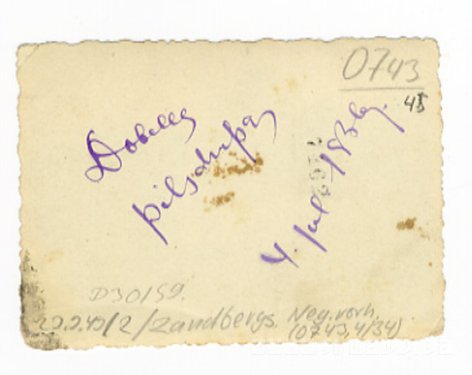 0743
45
Dobeles
pilsdrupas
4. jul. 193
D30/59.
/2/Zandbergs. Neg. vorh.
(0743,4/34)